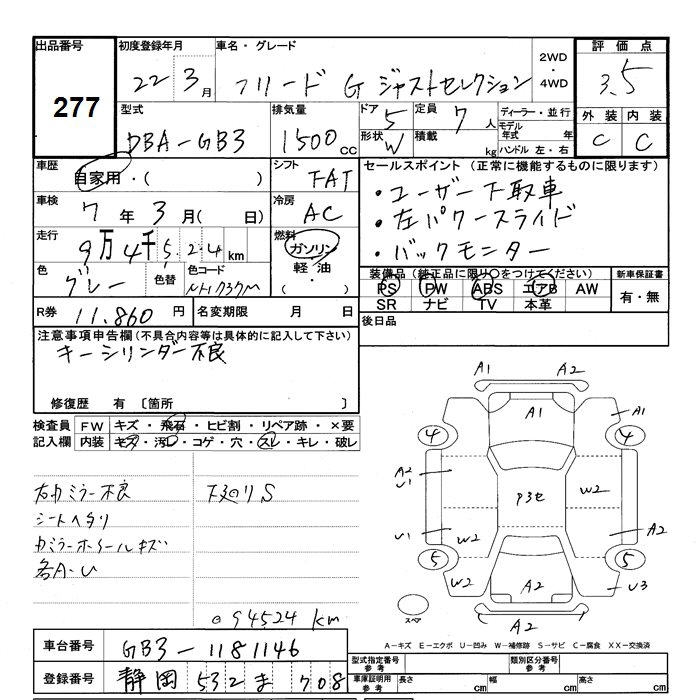 出品番号 初度登録年月 車名・グレード 2WD・4WD 評価点
277 22 3月 フリード G ジャストセレクション 3.5
型式 排気量 ドア 5 定員 7人 ディーラー・並行 外装 内装
DBA-GB3 1500cc 形状 W 積載 kg モデル年式 年 C C
ハンドル 左・右
車歴 自家用・( ) シフト FAT セールスポイント(正常に機能するものに限ります)
車検 7年 3月( 日) 冷房 AC ・ユーザー下取車
・左パワースライド
走行 9万4千5.2.4km 燃料 ガソリン・軽油・( ) ・バックモニター
色 グレー 色替 色コード 装備品(純正品に限り○をつけてください) 新車保証書
PS PW ABS エアB AW 有・無
SR ナビ TV 本革
R券 11.860円 名変期限 月 日 後日品
注意事項申告欄(不具合内容等は具体的に記入して下さい)
キーシリンダー不良
修復歴 有 〔箇所 〕
検査員記入欄 FW キズ・飛石・ヒビ割・リペア跡・×要
内装 キズ・汚レ・コゲ・穴・スレ・キレ・破レ
右カミラー不良 下廻りS
シートヘタリ
各A.U
94524km
A1 A2
A1 A1
4 4
A2 U1 P3セ W2
U1 W2 A2
5 5
W2 A2 U3
スペア A2
A-キズ E-エクボ U-凹み W-補修跡 S-サビ C-腐食 XX-交換済
車台番号 GB3-1181146
型式指定番号 参考 類別区分番号 参考
登録番号 静岡 532 ま 708
車庫証明用 参考 長さ cm 幅 cm 高さ cm